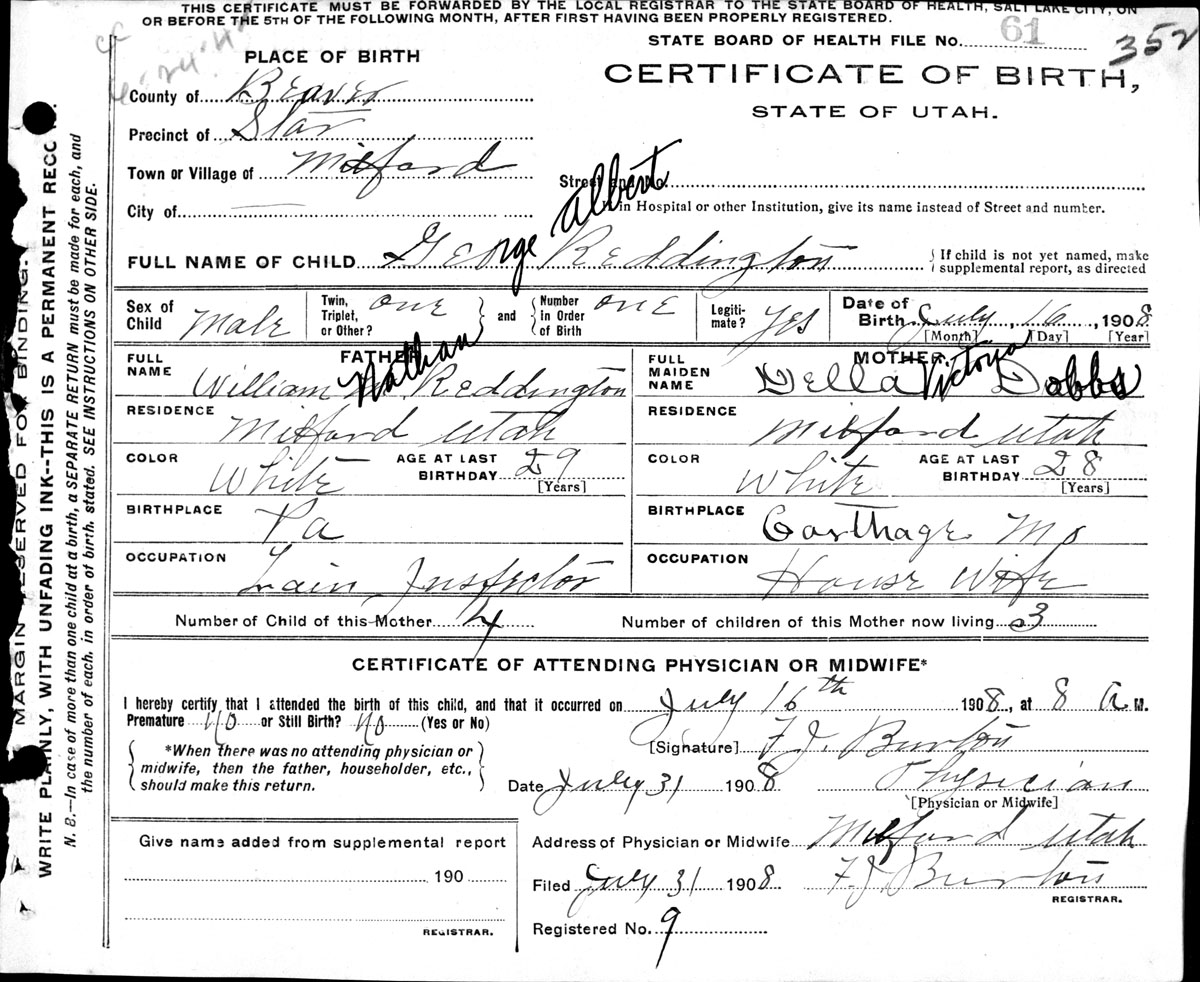 THIS CERTIFICATE MUST BE FORWARDED BY THE LOCAL REGISTRAR TO THE STATE BOARD OF HEALTH, SALT LAKE CITY, ON
OR BEFORE THE 5TH OF THE FOLLOWING MONTH, AFTER FIRST HAVING BEEN PROPERLY REGISTERED.
STATE BOARD OF HEALTH FILE No. 61
352
PLACE OF BIRTH
CERTIFICATE OF BIRTH,
STATE OF UTAH.
County of Beaver
Precinct of Star
Town or Village of Milford
Street and No.
City of
If in Hospital or other Institution, give its name instead of Street and number.
FULL NAME OF CHILD George Albert Reddington
If child is not yet named, make
supplemental report, as directed
Sex of Child Male
Twin, Triplet, or Other? one
and
Number in Order of Birth one
Legitimate? Yes
Date of Birth July, 16, 1908
[Month] [Day] [Year]
FATHER
FULL NAME William Nathan Reddington
RESIDENCE Milford Utah
COLOR White
AGE AT LAST BIRTHDAY 29
[Years]
BIRTHPLACE Pa
OCCUPATION Inspector
MOTHER
FULL MAIDEN NAME Della Victoria Dobbs
RESIDENCE Milford Utah
COLOR White
AGE AT LAST BIRTHDAY 28
[Years]
BIRTHPLACE Carthage Mo
OCCUPATION House Wife
Number of Child of this Mother 4
Number of children of this Mother now living 3
CERTIFICATE OF ATTENDING PHYSICIAN OR MIDWIFE*
I hereby certify that I attended the birth of this child, and that it occurred on July 16th 1908, at 8 A M.
Premature No or Still Birth? No (Yes or No)
*When there was no attending physician or
midwife, then the father, householder, etc.,
should make this return.
[Signature] F. J. Burton
Date July 31 1908
Physician
[Physician or Midwife]
Give name added from supplemental report
190
REGISTRAR.
Address of Physician or Midwife Milford Utah
Filed July 31 1908
F. J. Burton
REGISTRAR.
Registered No. 9
MARGIN RESERVED FOR BINDING.
WRITE PLAINLY, WITH UNFADING INK--THIS IS A PERMANENT RECO
N. B.—In case of more than one child at a birth, a SEPARATE RETURN must be made for each, and
the number of each, in order of birth, stated. SEE INSTRUCTIONS ON OTHER SIDE.